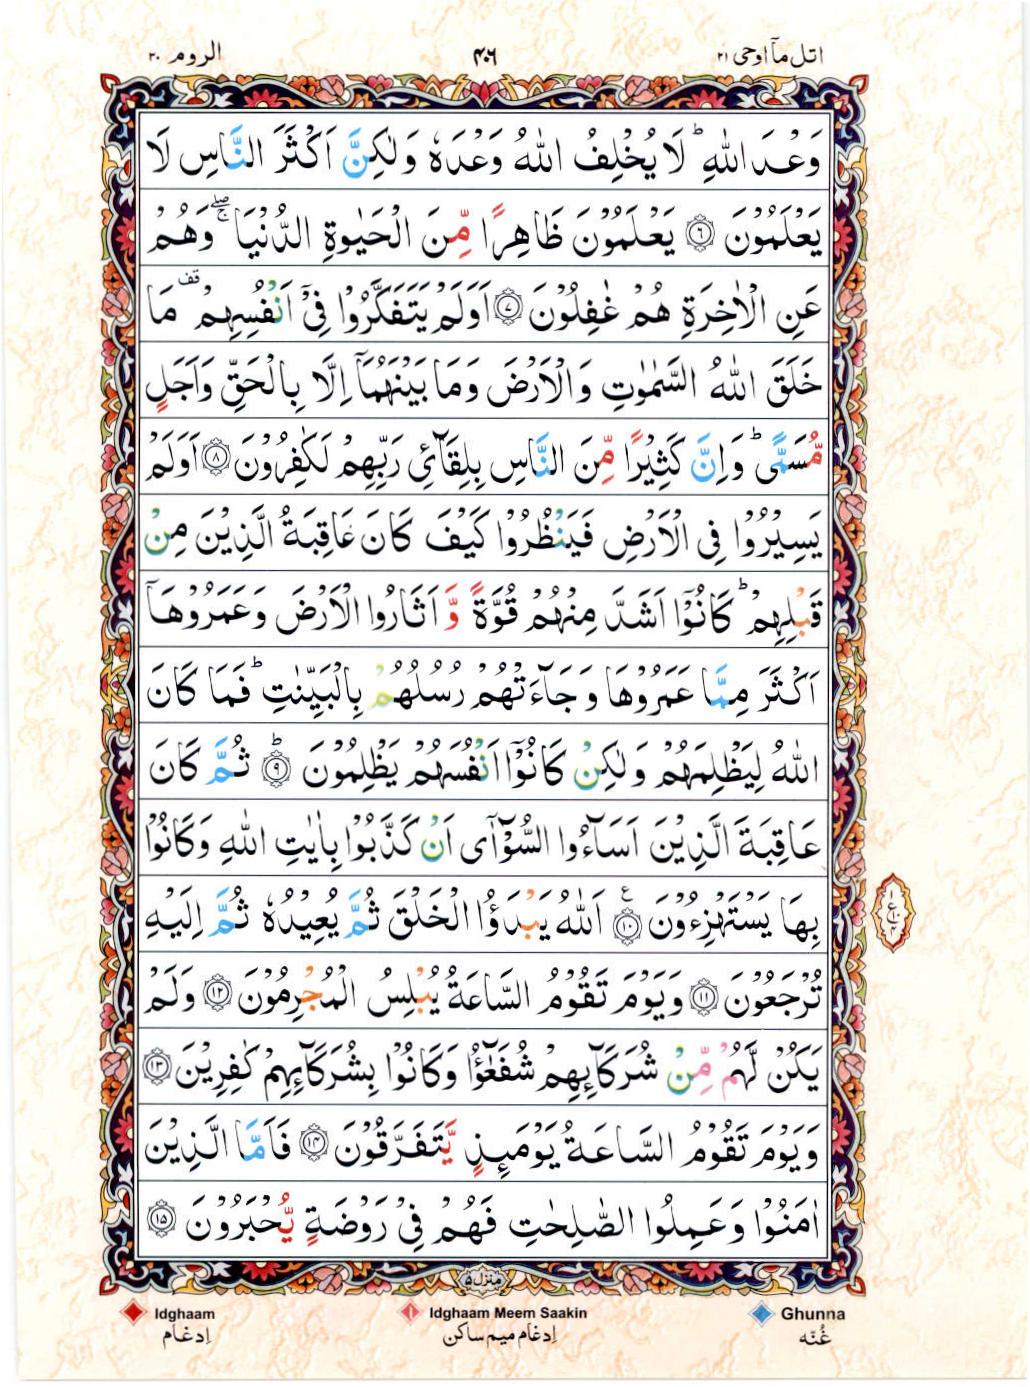 اتل مآ اوحی ۲۱
۴۰۶
الروم ۳۰
وَعْدَ اللّٰهِ ؕ لَا يُخْلِفُ اللّٰهُ وَعْدَهٗ وَلٰكِنَّ اَكْثَرَ النَّاسِ لَا
يَعْلَمُوْنَ ۝۶ يَعْلَمُوْنَ ظَاهِرًا مِّنَ الْحَيٰوةِ الدُّنْيَا ۖۚ وَهُمْ
عَنِ الْاٰخِرَةِ هُمْ غٰفِلُوْنَ ۝۷ اَوَلَمْ يَتَفَكَّرُوْا فِىْٓ اَنْفُسِهِمْ قف مَا
خَلَقَ اللّٰهُ السَّمٰوٰتِ وَالْاَرْضَ وَمَا بَيْنَهُمَاۤ اِلَّا بِالْحَقِّ وَاَجَلٍ
مُّسَمًّى ؕ وَاِنَّ كَثِيْرًا مِّنَ النَّاسِ بِلِقَآئِ رَبِّهِمْ لَكٰفِرُوْنَ ۝۸ اَوَلَمْ
يَسِيْرُوْا فِى الْاَرْضِ فَيَنْظُرُوْا كَيْفَ كَانَ عَاقِبَةُ الَّذِيْنَ مِنْ
قَبْلِهِمْ ؕ كَانُوْٓا اَشَدَّ مِنْهُمْ قُوَّةً وَّ اَثَارُوا الْاَرْضَ وَعَمَرُوْهَاۤ
اَكْثَرَ مِمَّا عَمَرُوْهَا وَجَآءَتْهُمْ رُسُلُهُمْ بِالْبَيِّنٰتِ ؕ فَمَا كَانَ
اللّٰهُ لِيَظْلِمَهُمْ وَلٰكِنْ كَانُوْٓا اَنْفُسَهُمْ يَظْلِمُوْنَ ؕ ۝۹ ثُمَّ كَانَ
عَاقِبَةَ الَّذِيْنَ اَسَآءُوا السُّوْٓاٰۤى اَنْ كَذَّبُوْا بِاٰيٰتِ اللّٰهِ وَكَانُوْا
بِهَا يَسْتَهْزِءُوْنَ ع ۝۱۰ اَللّٰهُ يَبْدَؤُا الْخَلْقَ ثُمَّ يُعِيْدُهٗ ثُمَّ اِلَيْهِ
تُرْجَعُوْنَ ۝۱۱ وَيَوْمَ تَقُوْمُ السَّاعَةُ يُبْلِسُ الْمُجْرِمُوْنَ ۝۱۲ وَلَمْ
يَكُنْ لَّهُمْ مِّنْ شُرَكَآئِهِمْ شُفَعٰٓؤُا وَكَانُوْا بِشُرَكَآئِهِمْ كٰفِرِيْنَ ۝۱۳
وَيَوْمَ تَقُوْمُ السَّاعَةُ يَوْمَئِذٍ يَّتَفَرَّقُوْنَ ۝۱۴ فَاَمَّا الَّذِيْنَ
اٰمَنُوْا وَعَمِلُوا الصّٰلِحٰتِ فَهُمْ فِىْ رَوْضَةٍ يُّحْبَرُوْنَ ۝۱۵
منزل ۵
Idghaam
اِدغام
Idghaam Meem Saakin
اِدغام میم ساکن
Ghunna
غُنّه